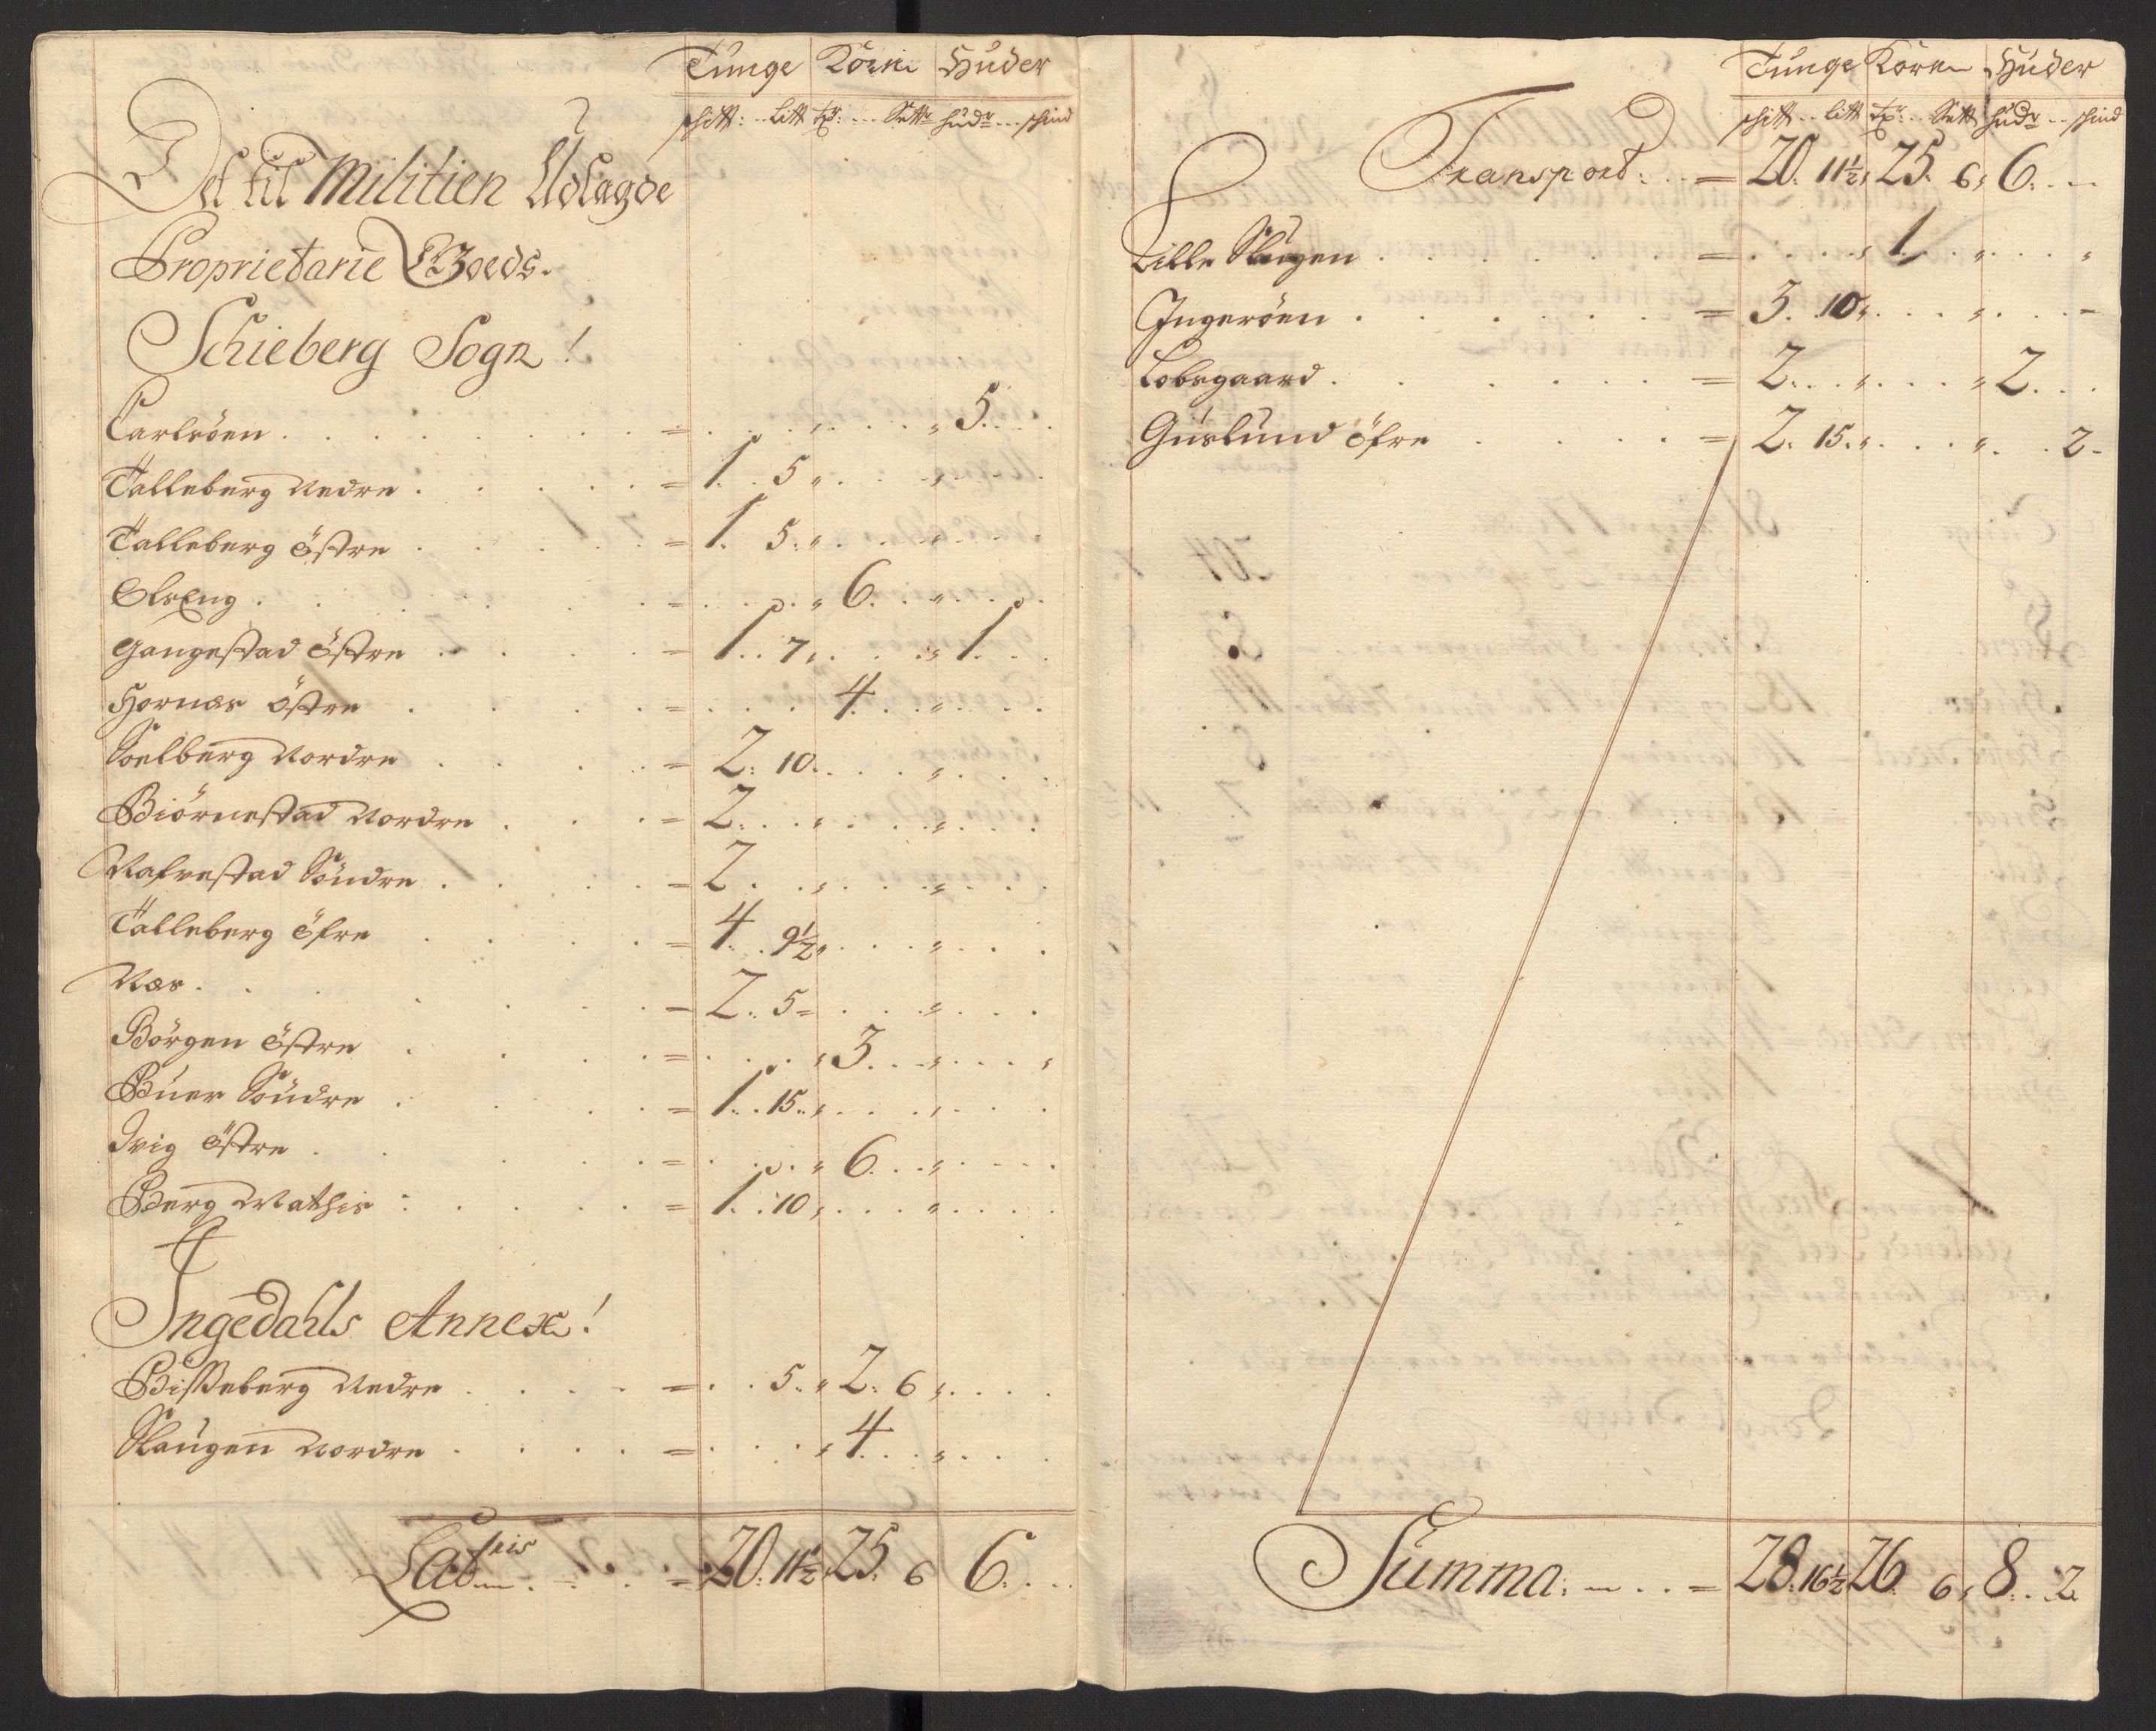 Tunge Korn Huder
schtt: .. Litt Tr: ... Sett hudr ... schind
Det til Militien Udlagde
Proprietarie Goeds.
Schieberg Sogn!
Carlsöen . . . = . . . . . . . 5. . .
Talleberg Nedre . . . = 1. 5 . . . .
Talleberg östre . . . = 1. 5. . . . .
Olseng . . . = . . . 6. . . .
Gangestad östre . . . = 1. 7. . . 1. .
Hornes östre . . . = . . . 4. . . .
Soelberg Nordre . . . = 2. 10. . . .
Biörnestad Nordre . . . = 2. . . . .
Nafvestad Söndre . . . = 2. . . . .
Talleberg öfre . . . = 4. 9½ . . . .
Næs . . . = 2. 5 = . . .
Börgen östre . . . = . . . 3. . . .
Buer Söndre . . . = 1. 15. . . .
Ivig östre . . . = . . . 6. . . .
Berg Mathis : . . = 1. 10 . . . .
Ingedahls Annex!
Bisseberg Nedre . . . = . . 5. 2. 6 . . .
Skaugen Nordre . . . = . . . 4. . . .
Lateris . . = 20. 11½ 25. 6 6. . .
Tunge Korn Huder
schtt .. Litt Tr: .. Sett hudr .. schind
Transport: . . = 20. 11½ 25. 6, 6. . .
Lille Skugen . . . = . . . 1. . . .
Ingeröen . . . = 3. 10 . . . . -
Tobsgaard . . . = 2. . . . 2. . .
Guslund öfre . . . = 2. 15. . . . 2.
Summa: . . = 28. 16½ 26. 6, 8. . 2